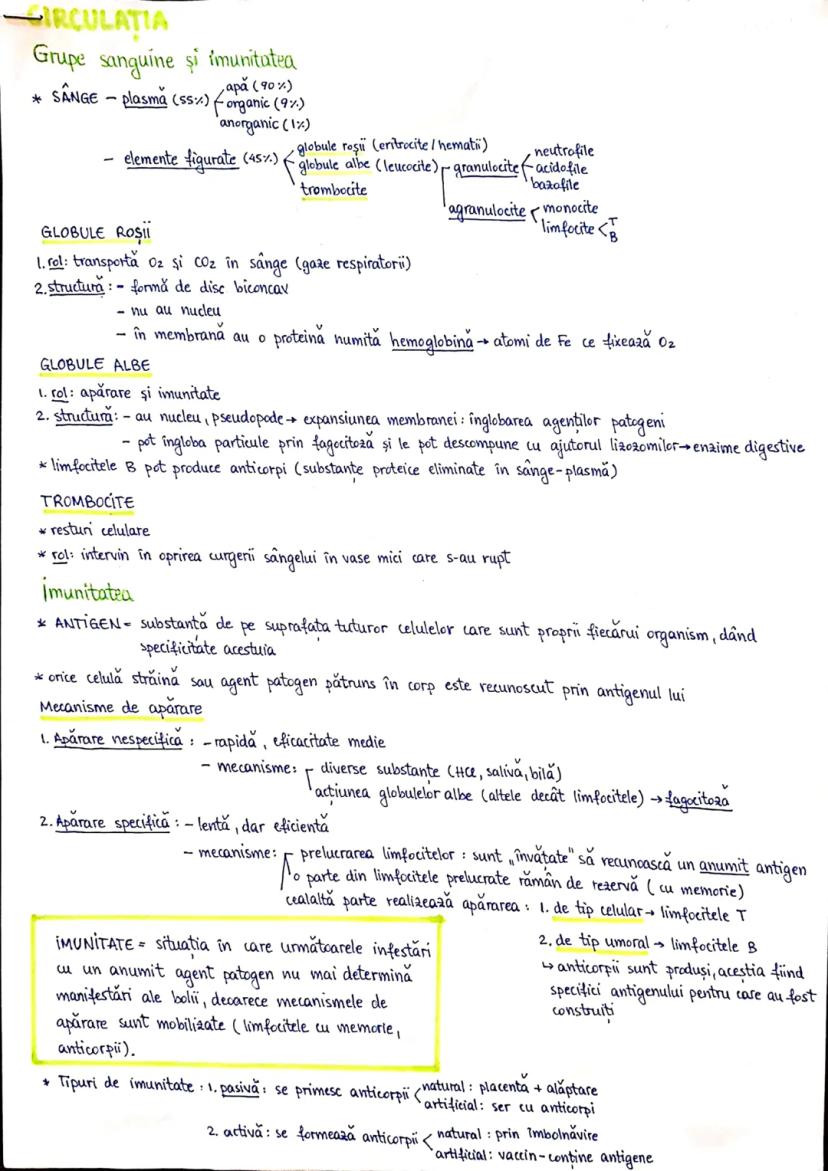 CIRCULAȚIA
Grupe sanguine și imunitatea
* SÂNGE – plasmă (55%) apă (90%)
organic (9%)
anorganic (1%)
– elemente figurate (45%) globule roșii (eritrocite / hematii)
globule albe (leucocite) granulocite neutrofile
acidofile
bazofile
trombocite
agranulocite monocite
limfocite T
B
GLOBULE ROȘII
1. rol: transportă O2 și CO2 în sânge (gaze respiratorii)
2. structură: - formă de disc biconcav
- nu au nucleu
- în membrană au o proteină numită hemoglobină → atomi de Fe ce fixează O2
GLOBULE ALBE
1. rol: apărare și imunitate
2. structură: - au nucleu, pseudopode → expansiunea membranei: înglobarea agenților patogeni
- pot îngloba particule prin fagocitoză și le pot descompune cu ajutorul lizozomilor → enzime digestive
* limfocitele B pot produce anticorpi (substanțe proteice eliminate în sânge-plasmă)
TROMBOCITE
* resturi celulare
* rol: intervin în oprirea curgerii sângelui în vase mici care s-au rupt
Imunitatea
* ANTIGEN = substanță de pe suprafața tuturor celulelor care sunt proprii fiecărui organism, dând
specificitate acestuia
* orice celulă străină sau agent patogen pătruns în corp este recunoscut prin antigenul lui
Mecanisme de apărare
1. Apărare nespecifică: - rapidă, eficacitate medie
- mecanisme: diverse substanțe (HCE, salivă, bilă)
acțiunea globulelor albe (altele decât limfocitele) → fagocitoză
2. Apărare specifică: - lentă, dar eficientă
- mecanisme: prelucrarea limfocitelor: sunt „învățate" să recunoască un anumit antigen
o parte din limfocitele prelucrate rămân de rezervă (cu memorie)
cealaltă parte realizează apărarea: 1. de tip celular → limfocitele T
2. de tip umoral → limfocitele B
↳ anticorpii sunt produși, aceștia fiind
specifici antigenului pentru care au fost
construiți
IMUNITATE = situația în care următoarele infestări
cu un anumit agent patogen nu mai determină
manifestări ale bolii, deoarece mecanismele de
apărare sunt mobilizate (limfocitele cu memorie,
anticorpii).
* Tipuri de imunitate: 1. pasivă: se primesc anticorpii natural: placentă + alăptare
artificial: ser cu anticorpi
2. activă: se formează anticorpii natural: prin îmbolnăvire
artificial: vaccin-conține antigene